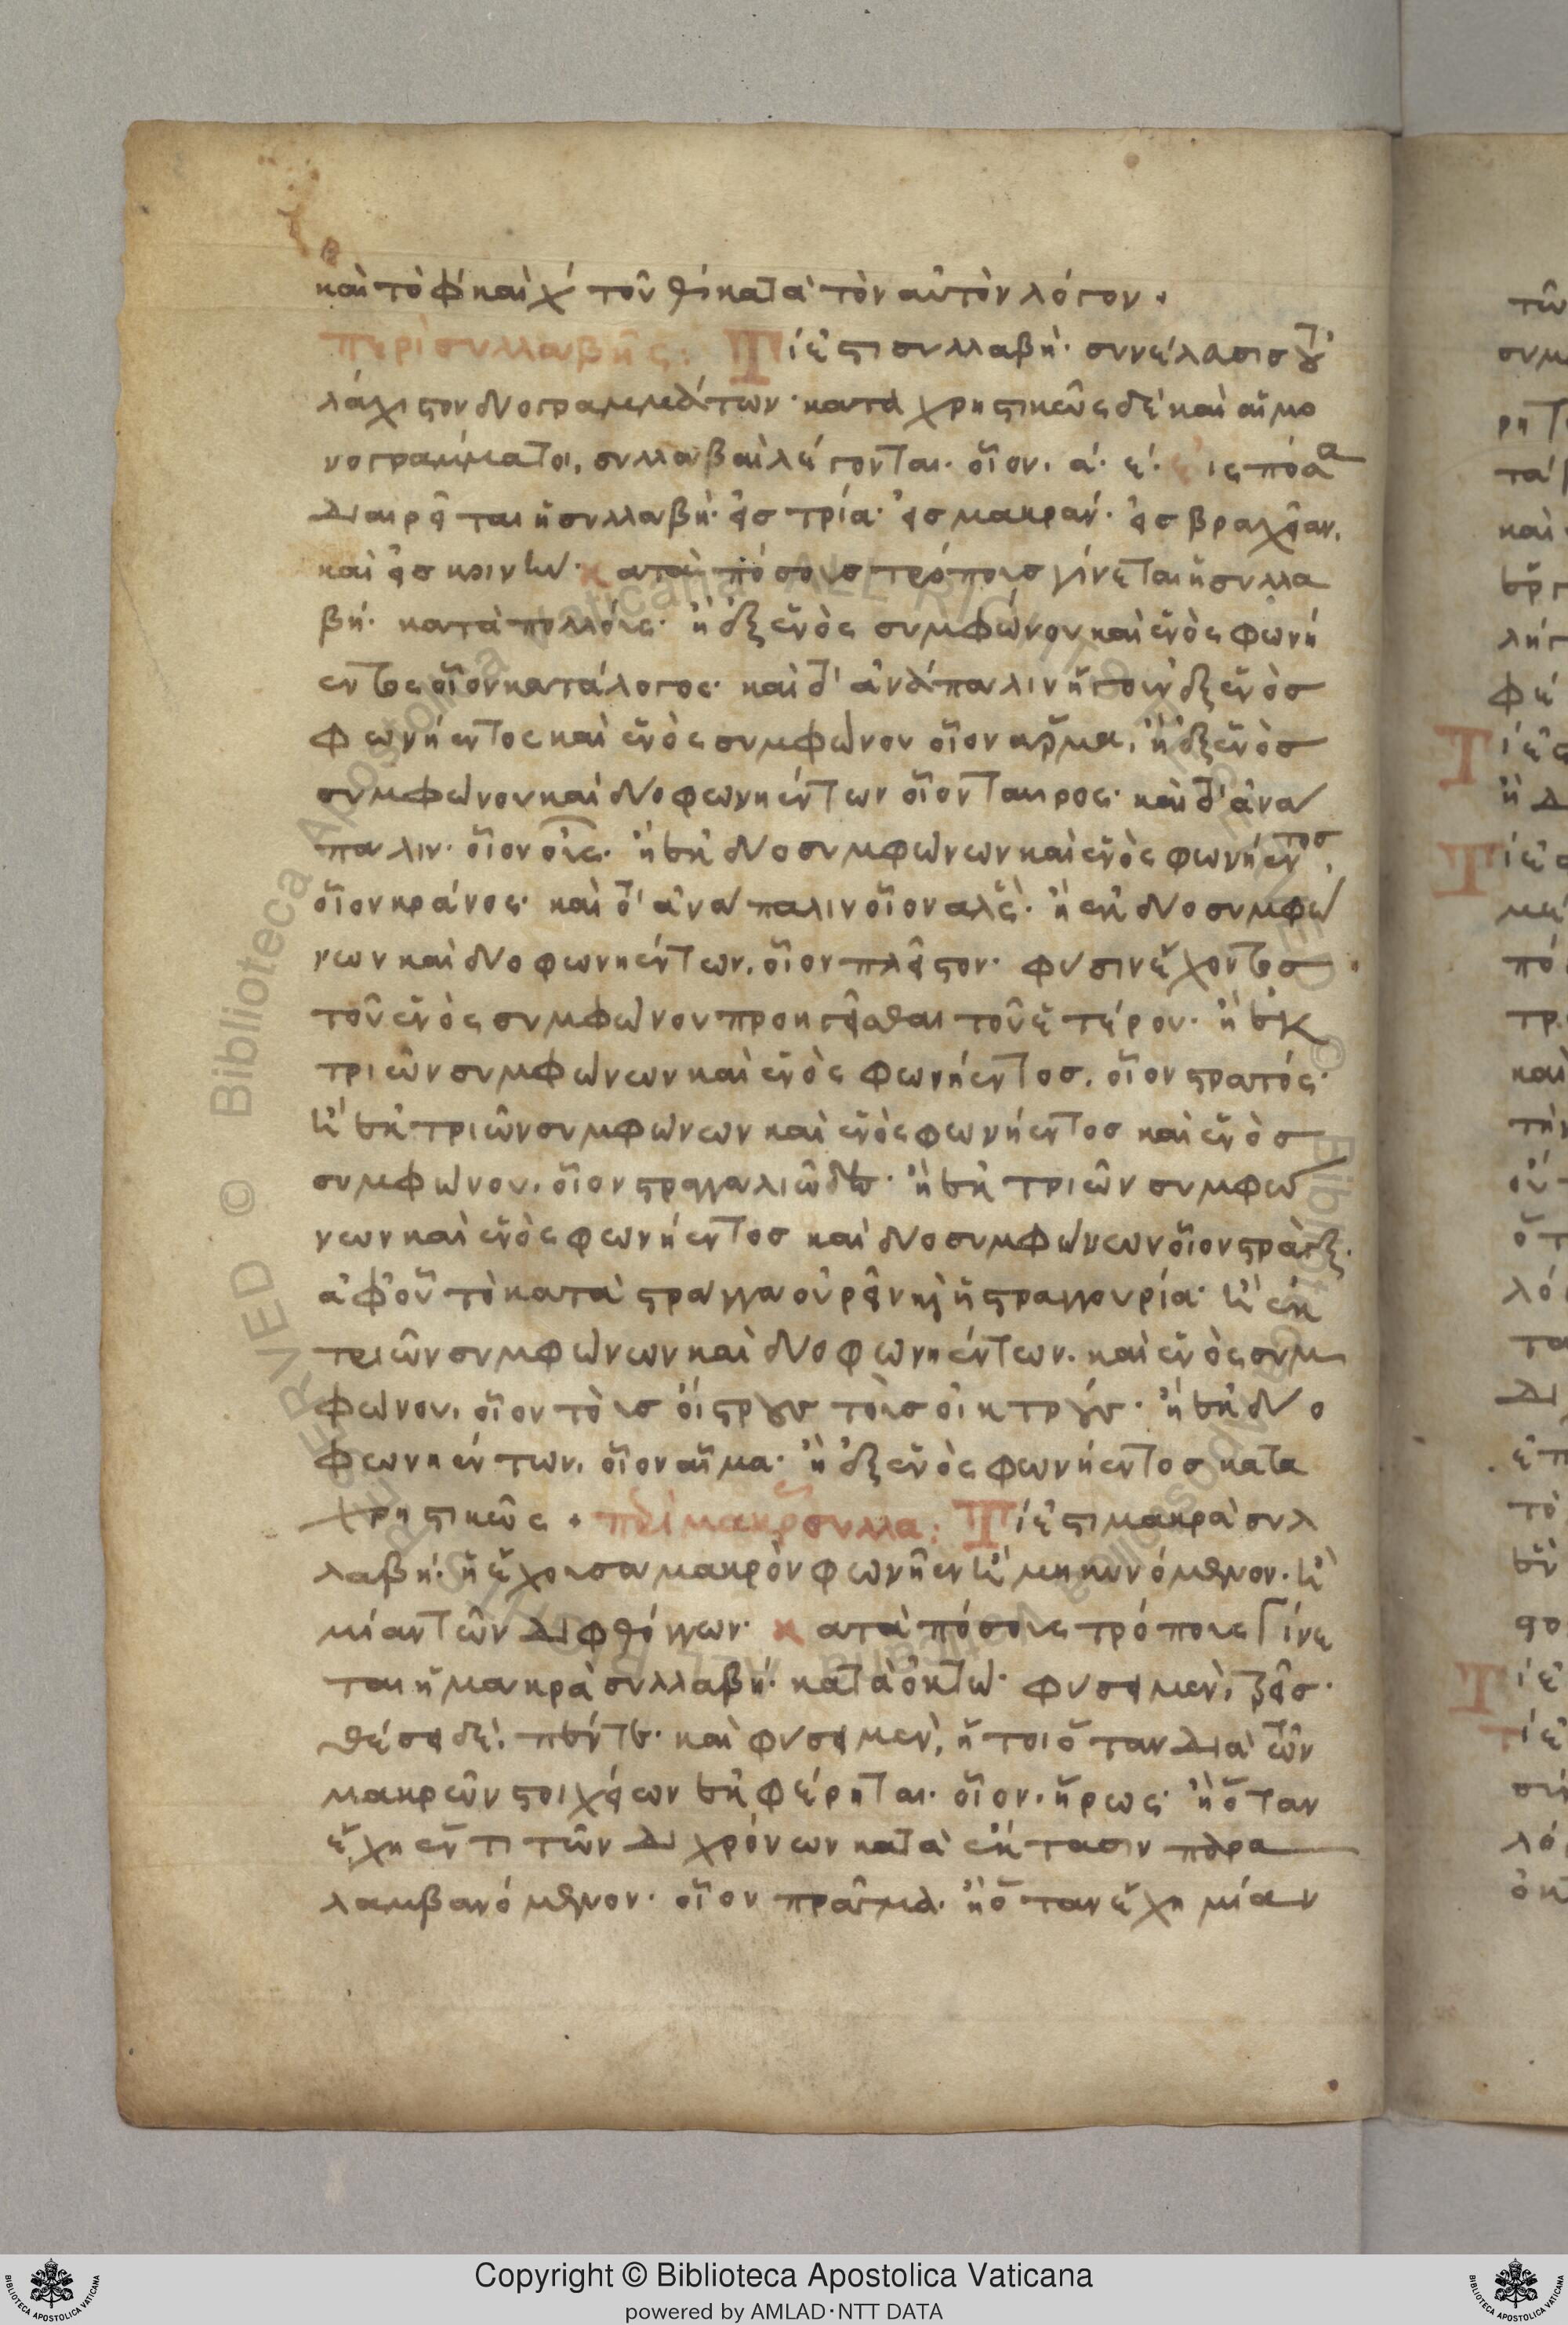 καὶ τὸ φ καὶ χ τοῦ θ κατὰ τὸν αὐτὸν λόγον.
περὶ συλλαβῆς: Τί ἐστι συλλαβή· συνέλασις τοὐ
λάχιστον δύο γραμμάτων· καταχρηστικῶς δὲ καὶ αἱ μο
νογράμματοι, συλλαβαὶ λέγονται. οἷον, α· ε·
Διαιρεῖται ἡ συλλαβή· εἰς τρία· εἰς μακράν· εἰς βραχεῖαν,
καὶ εἰς κοινήν· κατὰ πόσους τρόπους γίνεται ἡ συλλα
βή· κατὰ πολλούς· ἢ ἐξ ἑνὸς συμφώνου καὶ ἑνὸς φωνή
εντος οἷον κατάλογος· καὶ τ' ἀνάπαλιν ἤγουν ἐξ ἑνὸς
φωνήεντος καὶ ἑνὸς συμφώνου οἷον ἢ ἐξ ἑνὸς
συμφώνου καὶ δύο φωνηέντων οἷον ταῦρος· καὶ τ' ἀνα
παλιν· οἷον οἷς· ἢ ἐκ δύο συμφώνων καὶ ἑνὸς φωνήεντος,
οἷον κράνος· καὶ τ' ἀνάπαλιν οἷον ἅλς· ἢ ἐκ δύο συμφώ
νων καὶ δύο φωνηέντων, οἷον πλεῖστον· φύσιν ἔχοντες
τοῦ ἑνὸς συμφώνου προηγεῖσθαι τοῦ ἑτέρου· ἢ ἐκ
τριῶν συμφώνων καὶ ἑνὸς φωνήεντος, οἷον στρατός·
ἢ ἐκ τριῶν συμφώνων καὶ ἑνὸς φωνήεντος καὶ ἑνὸς
συμφώνου, οἷον στραγγαλιῶδες· ἢ ἐκ τριῶν συμφώ
νων καὶ ἑνὸς φωνήεντος καὶ δύο συμφώνων οἷον στρὰγξ·
ἀφ' οὗ τὸ κατὰ στράγγα οὐρεῖν καὶ ἡ στραγγουρία· ἢ ἐκ
τριῶν συμφώνων καὶ δύο φωνηέντων, καὶ ἑνὸς συμ
φώνου, οἷον τοῖς οἴστροις ἢ ἐκ δύο
φωνηέντων, οἷον αἷμα· ἢ ἐξ ἑνὸς φωνήεντος κατα
χρηστικῶς. περὶ μακρᾶς συλλα: Τί ἐστι μακρὰ συλ
λαβή· ἡ ἔχουσα μακρὸν φωνῆεν ἢ μηκυνόμενον· ἢ
μίαν τῶν διφθόγγων· κατὰ πόσους τρόπους γίνε
ται ἡ μακρὰ συλλαβή· κατὰ ὀκτώ· φύσει μὲν, τρεῖς·
θέσει δὲ, πέντε· καὶ φύσει μὲν, ἤτοι ὅταν διὰ τῶν
μακρῶν στοιχείων ἐκφέρηται· οἷον, ἥρως· ἢ ὅταν
ἔχῃ ἕν τι τῶν διχρόνων κατὰ ἔκτασιν παρα
λαμβανόμενον· οἷον πρᾶγμα· ἢ ὅταν ἔχῃ μίαν
Copyright © Biblioteca Apostolica Vaticana
powered by AMLAD·NTT DATA